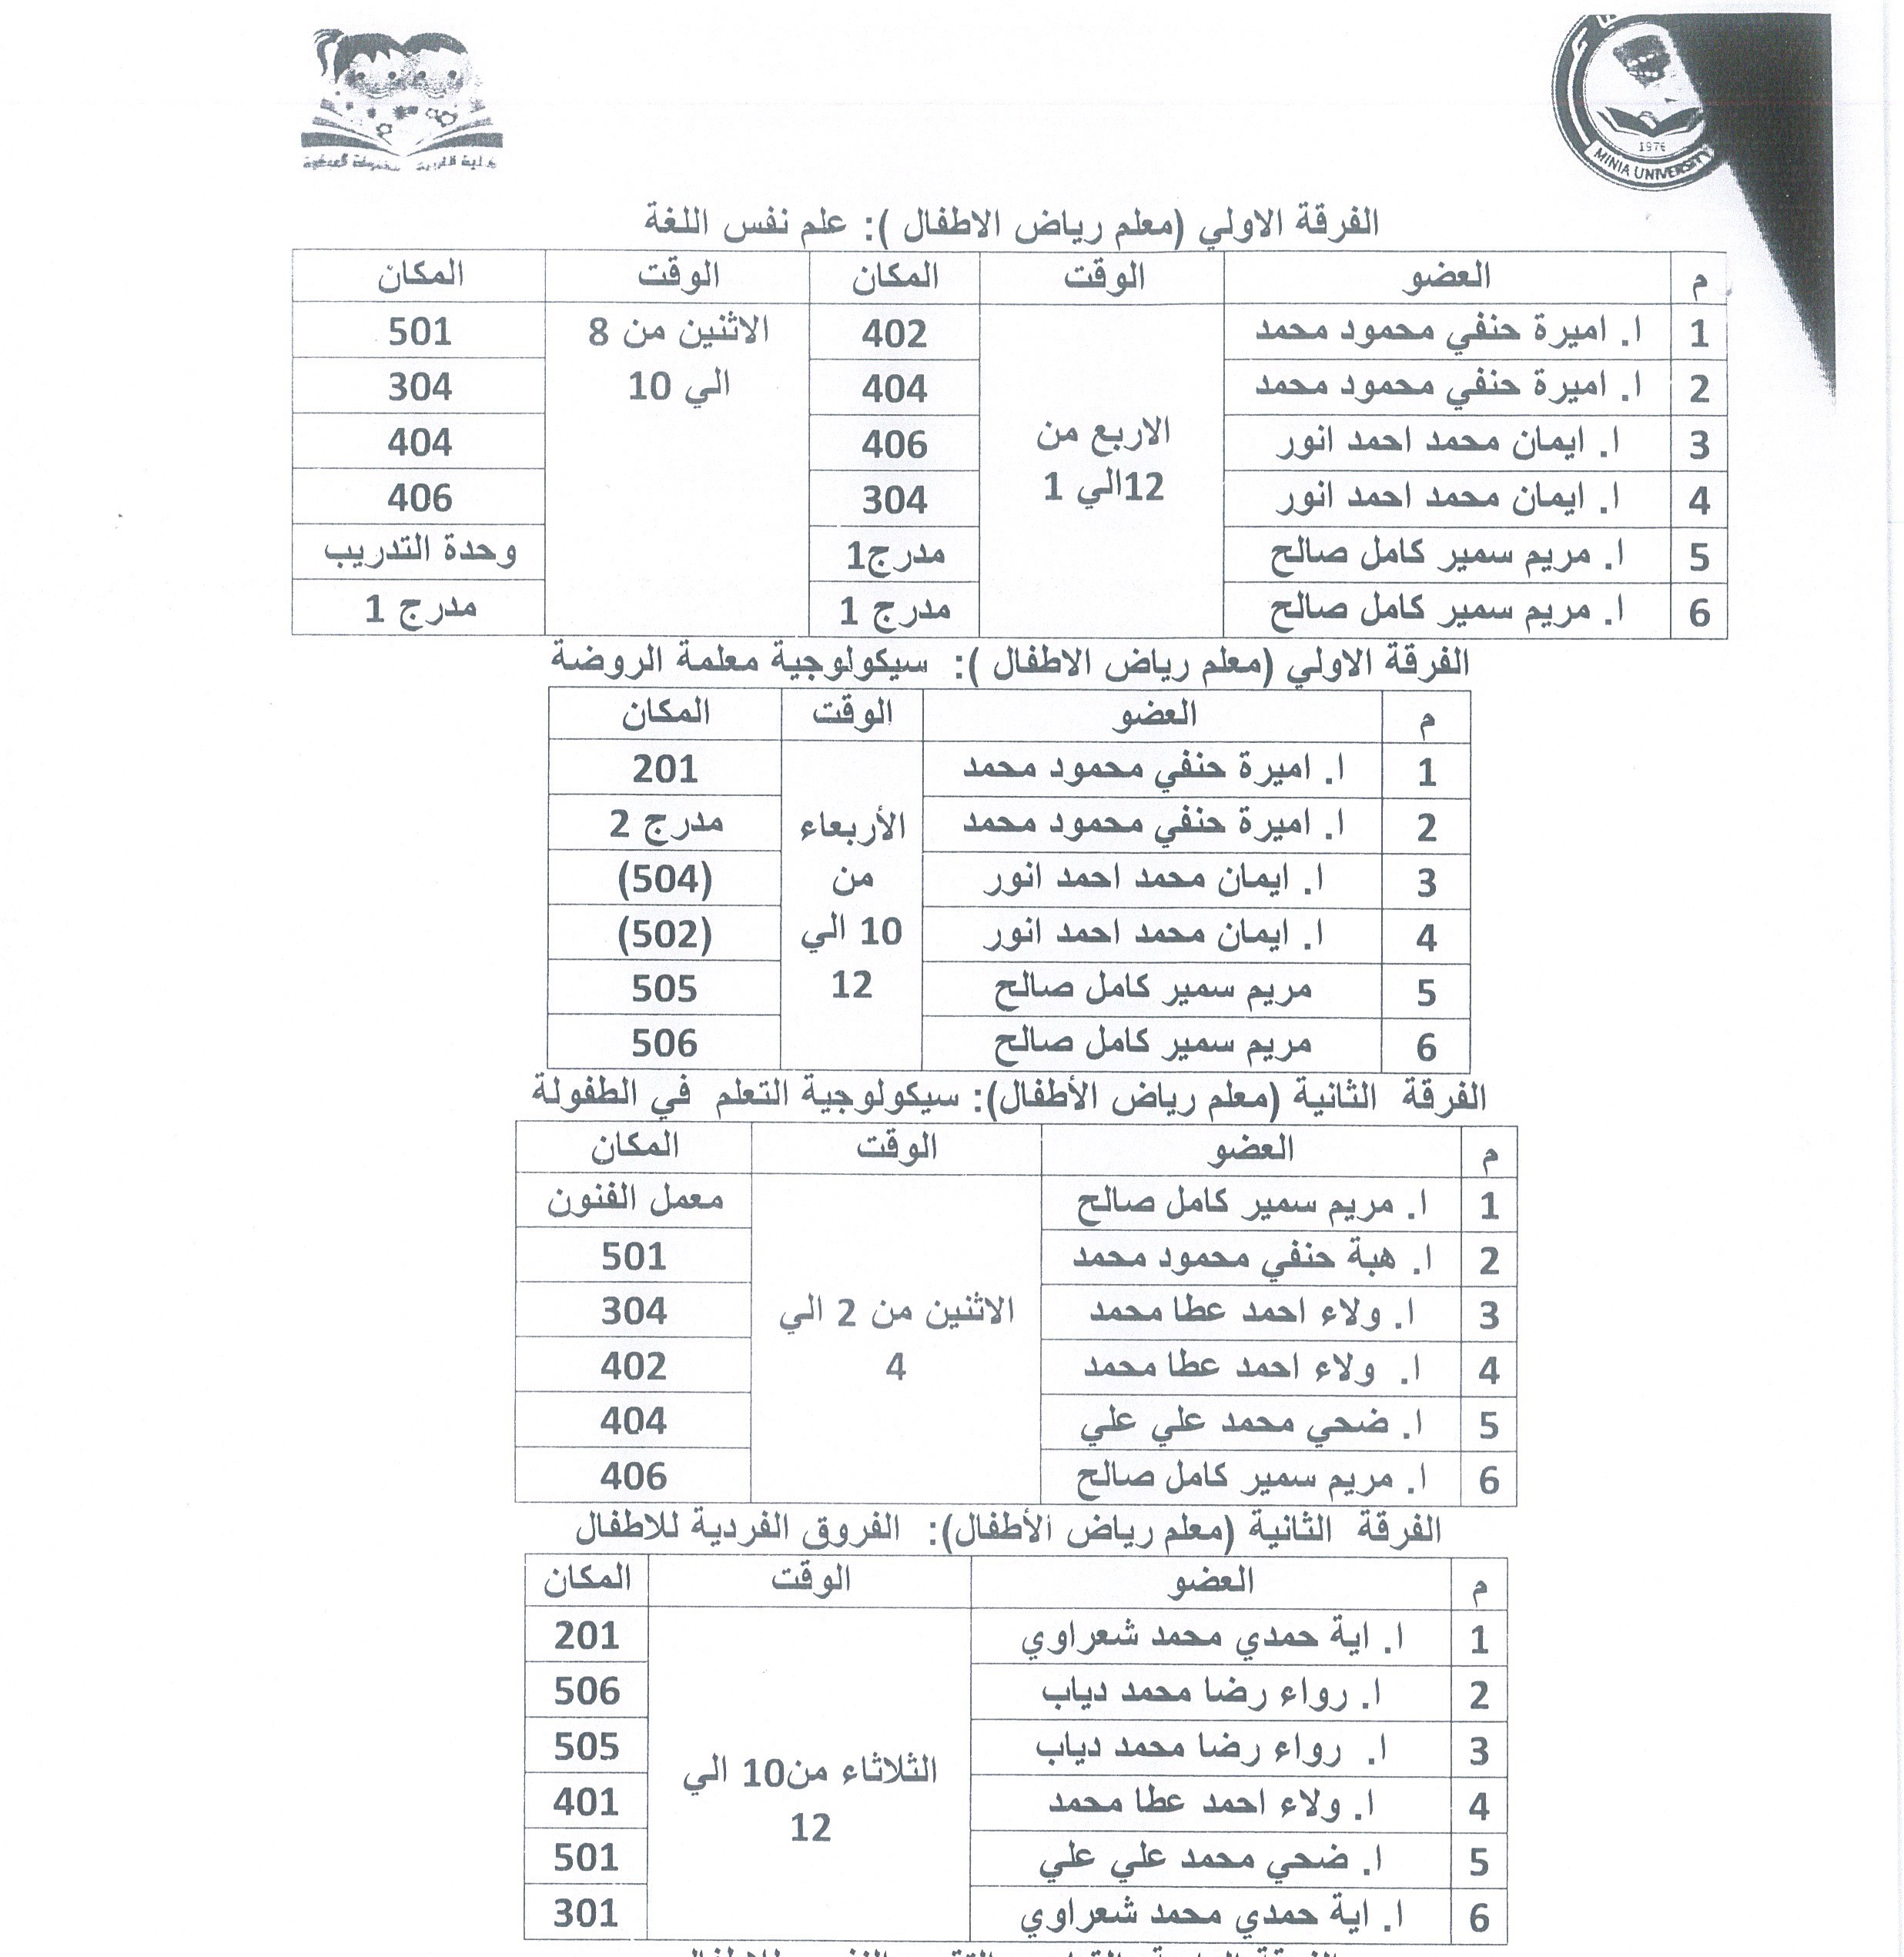 1976
MINIA UNIVERSITY
الفرقة الاولي (معلم رياض الاطفال ): علم نفس اللغة
م العضو الوقت المكان الوقت المكان
1 ا. اميرة حنفي محمود محمد 402 501
2 ا. اميرة حنفي محمود محمد 404 304
3 ا. ايمان محمد احمد انور 406 404
4 ا. ايمان محمد احمد انور 304 406
5 ا. مريم سمير كامل صالح مدرج1 وحدة التدريب
6 ا. مريم سمير كامل صالح مدرج 1 مدرج 1
الاربع من
12الي 1
الاثنين من 8
الي 10
الفرقة الاولي (معلم رياض الاطفال ): سيكولوجية معلمة الروضة
م العضو الوقت المكان
1 ا. اميرة حنفي محمود محمد 201
2 ا. اميرة حنفي محمود محمد مدرج 2
3 ا. ايمان محمد احمد انور (504)
4 ا. ايمان محمد احمد انور (502)
5 مريم سمير كامل صالح 505
6 مريم سمير كامل صالح 506
الأربعاء
من
10 الي
12
الفرقة الثانية (معلم رياض الأطفال): سيكولوجية التعلم في الطفولة
م العضو الوقت المكان
1 ا. مريم سمير كامل صالح معمل الفنون
2 ا. هبة حنفي محمود محمد 501
3 ا. ولاء احمد عطا محمد 304
4 ا. ولاء احمد عطا محمد 402
5 ا. ضحي محمد علي علي 404
6 ا. مريم سمير كامل صالح 406
الاثنين من 2 الي
4
الفرقة الثانية (معلم رياض الأطفال): الفروق الفردية للاطفال
م العضو الوقت المكان
1 ا. اية حمدي محمد شعراوي 201
2 ا. رواء رضا محمد دياب 506
3 ا. رواء رضا محمد دياب 505
4 ا. ولاء احمد عطا محمد 401
5 ا. ضحي محمد علي علي 501
6 ا. اية حمدي محمد شعراوي 301
الثلاثاء من10 الي
12